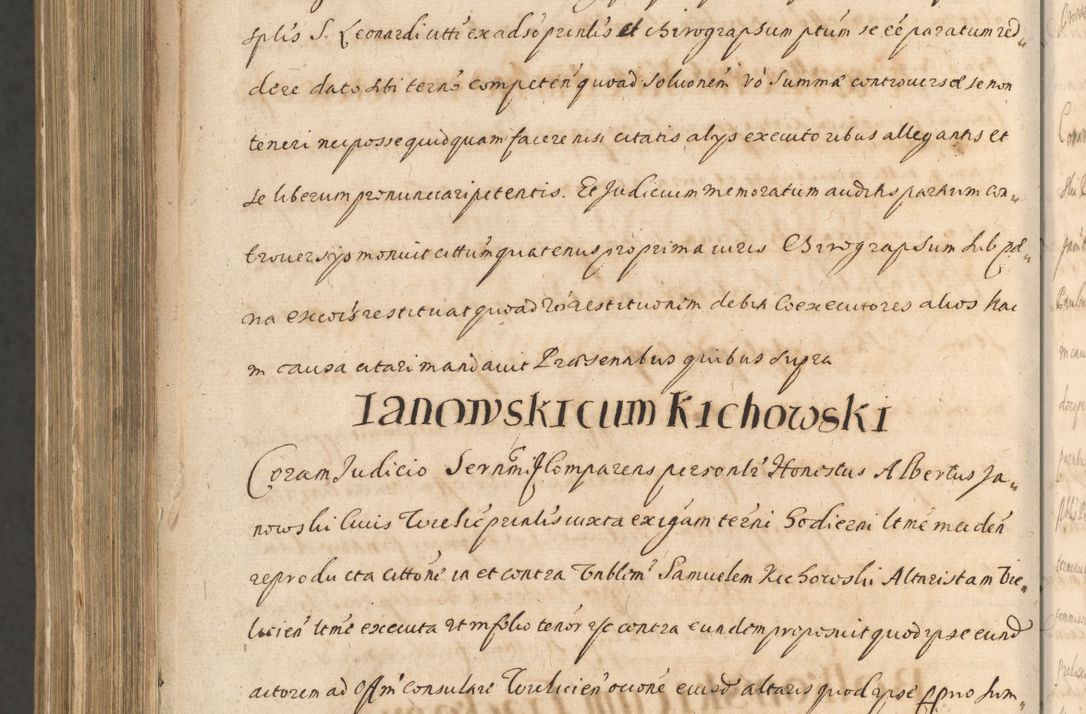 splis S. Leonardi citti ex adso prnlis et chirographum ptum se eé paratum red„
dere dato sibi termo competen quoad solvonem vo summæ controversæ se non
teneri nec posse quidquam facere nisi citatis alys executoribus allegantis et
se liberum pronunciari petentis. Et Judicium memoratum auditis partium con„
troversys monuit cittum quatenus pro prima iuris Chirographum sub pæ„
na excois restituat quoad vo restitutionem debiti Coexecutores alios hac
in causa citari mandavit Præsentibus quibus supra
Ianowski cum Kichowski
Coram Judicio Comparens personlr Honestus Albertus Ja„
nowski Civis prnlis iuxta exigam termi hodierni ltme meiden
reproducta cittone in et contra Vnblem Samuelem Kichowski Altaristam
ltme executa at infolio tenor contra eundem proposuit quod ipse eund
actorem ad Offm Consulare ocone eiusd altaris quod ipse pro sum„